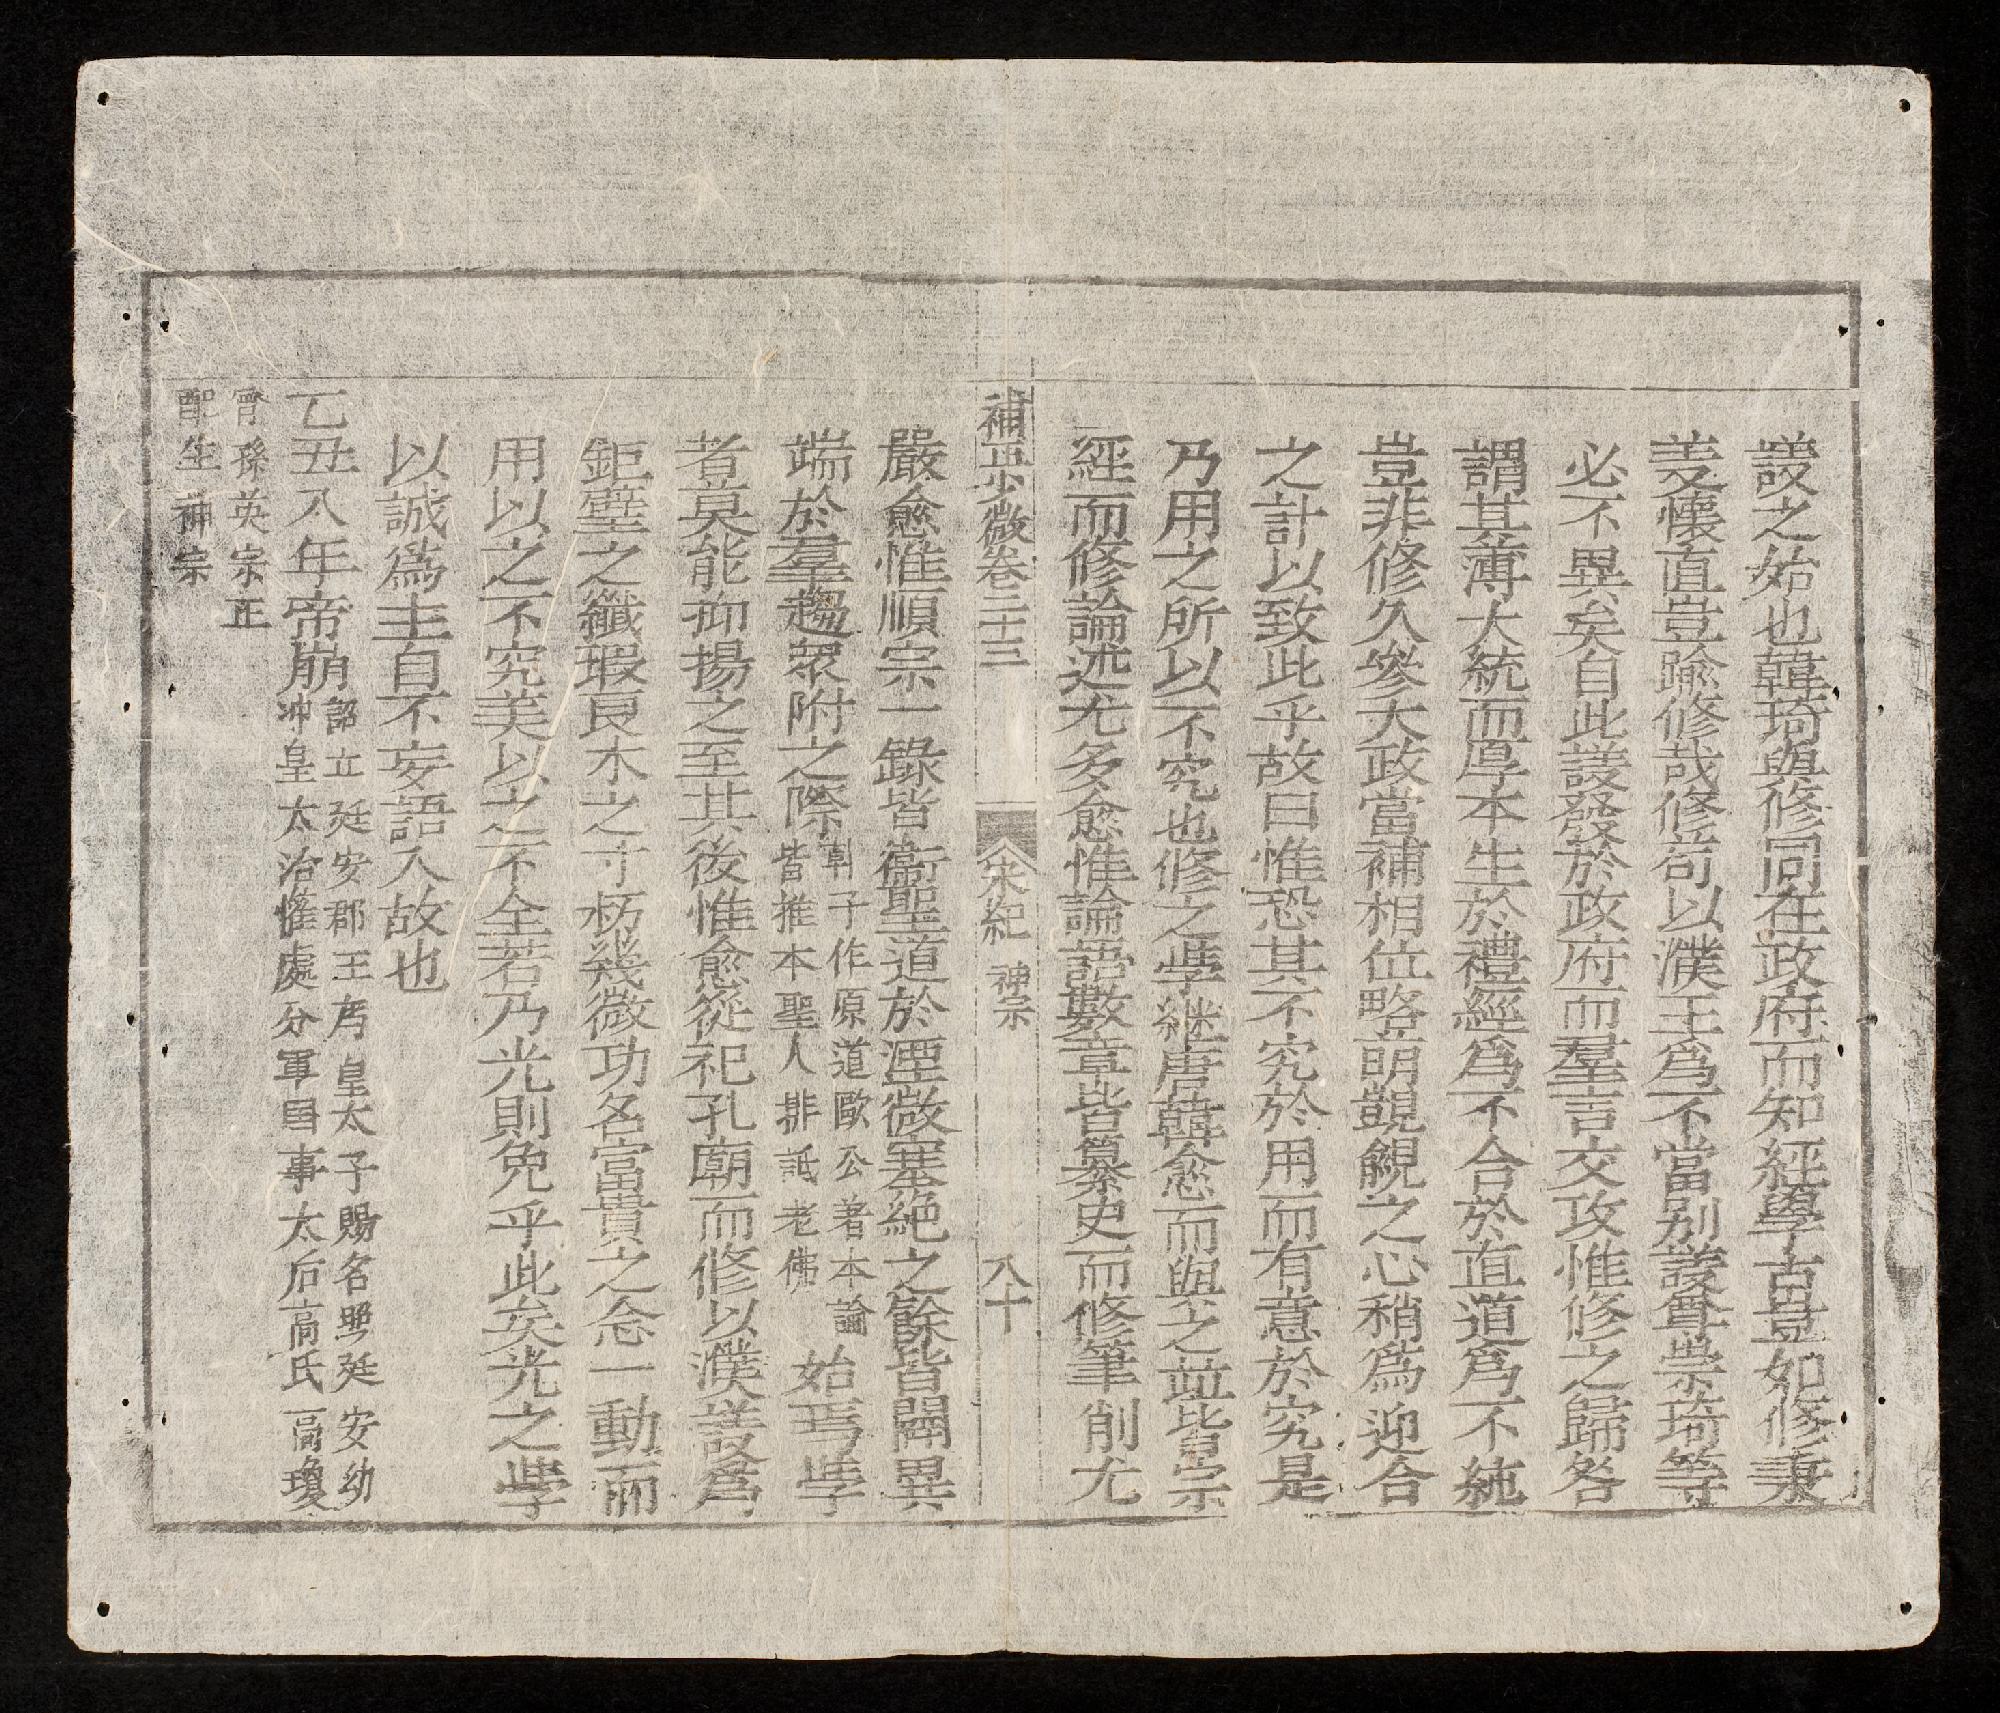 議之始也韓琦與修同在政府而知經學古豈如修秉
羑懷直豈踰修哉修苟以濮王爲不當別議尊崇琦等
必不異矣自此議發於政府而羣言交攻惟修之歸咎
謂其薄大統而厚本生於禮經爲不合於直道爲不純
豈非修久參大政當補相位略萌覬覦之心稍爲迎合
之計以致此乎故曰惟恐其不究於用而有意於究是
乃用之所以不究也修之學継唐韓愈而與之竝皆宗
經而修論述尤多愈惟論語數章皆纂史而修筆削尤
補正少微卷二十三 宋紀 神宗 八十
嚴愈惟順宗一錄皆衞聖道於湮微塞絕之餘皆闢異
端於羣趨衆附之際韓子作原道歐公著本論皆推本聖人排詆老佛始焉學
者莫能抑揚之至其後惟愈從祀孔廟而修以濮議爲
鉅璧之纖瑕良木之寸朽幾微功名富貴之念一動而
用以之不究美以之不全若乃光則免乎此矣光之學
以誠爲主自不妄語入故也
乙丑八年帝崩詔立延安郡王為皇太子賜名煦延安幼冲皇太治權處分軍国事太后高氏高瓊
曾孫英宗正
配生神宗